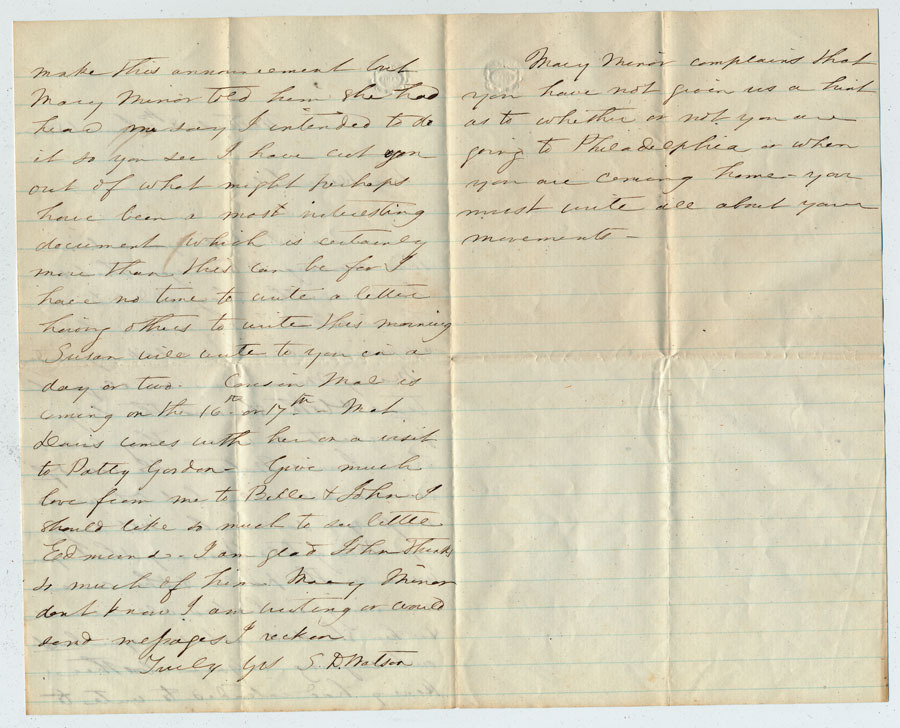 make this announcement but
Mary Minor told him she had
hear me say I intended to do
it so you see I have cut you
out of what might perhaps
have been a most interesting
document which is certainly
more than this can be for I
have no time to write a letter
having others to write this morning
Susan will write to you in a
day or two. Cousin Mal is
coming on the 16th or 17th Mat
Davis comes with her on a visit
to Patty Gordon - Give much
love from me to Belle & John I
should like so much to see little
Edmund. I am glad John thinks
so much of him Mary Minor
dont know I am writing or would
send messages I reckon
Truly yrs S. D. Watson
Mary Minor complains that
you have not given us a hint
as to whether or not you are
going to Philadelphia or when
you are coming home - you
must write all about your
movements -